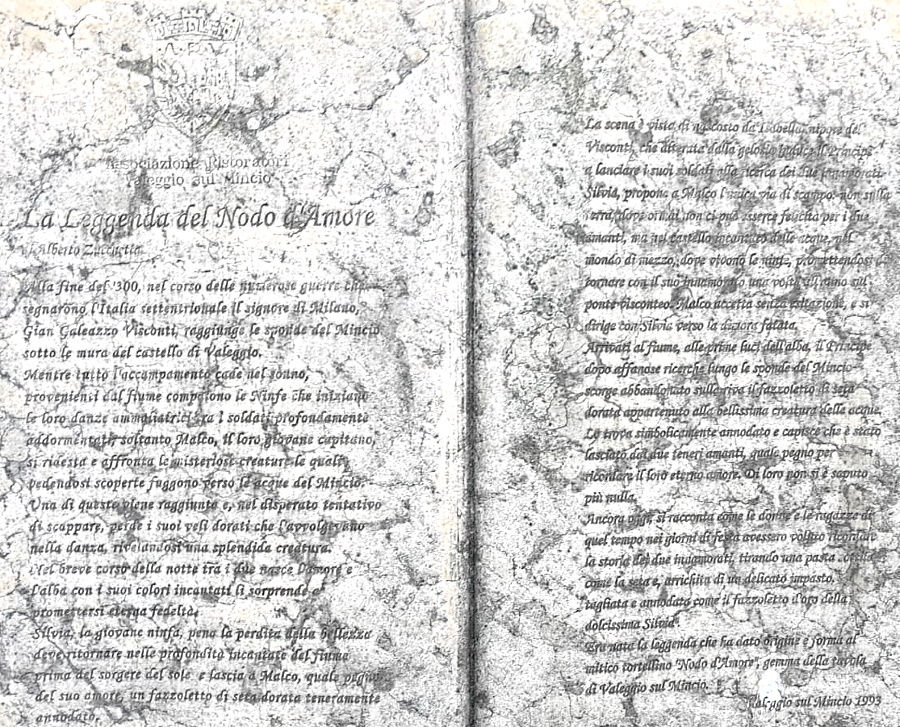 Associazione Ristoratori
Valeggio sul Mincio
La Leggenda del Nodo d'Amore
di Alberto Zucchetta
Alla fine del '300, nel corso delle numerose guerre che
segnarono l'Italia settentrionale il signore di Milano,
Gian Galeazzo Visconti, raggiunge le sponde del Mincio
sotto le mura del castello di Valeggio.
Mentre tutto l'accampamento cade nel sonno,
provenienti dal fiume compaiono le Ninfe che iniziano
le loro danze ammaliatrici tra i soldati profondamente
addormentati; soltanto Malco, il loro giovane capitano,
si ridesta e affronta le misteriose creature le quali
vedendosi scoperte fuggono verso le acque del Mincio.
Una di queste viene raggiunta e, nel disperato tentativo
di scappare, perde i suoi veli dorati che l'avvolgevano
nella danza, rivelandosi una splendida creatura.
Nel breve corso della notte tra i due nasce l'amore e
l'alba con i suoi colori incantati li sorprende a
promettersi eterna fedeltà.
Silvia, la giovane ninfa, pena la perdita della bellezza
deve ritornare nelle profondità incantate del fiume
prima del sorgere del sole e lascia a Malco, quale pegno
del suo amore, un fazzoletto di seta dorata teneramente
annodato.
La scena è vista di nascosto da Isabella, nipote dei
Visconti, che alterata dalla gelosia induce il Principe
a lanciare i suoi soldati alla ricerca dei due innamorati.
Silvia, propone a Malco l'unica via di scampo: non sulla
terra, dove ormai non ci può essere felicità per i due
amanti, ma nel castello incantato delle acque, nel
mondo di mezzo, dove vivono le ninfe, promettendosi di
tornare con il suo innamorato una volta all'anno sul
ponte visconteo. Malco accetta senza esitazione, e si
dirige con Silvia verso la dimora fatata.
Arrivati al fiume, alle prime luci dell'alba, il Principe
dopo affanose ricerche lungo le sponde del Mincio
scorge abbandonato sulla riva il fazzoletto di seta
dorata appartenuto alla bellissima creatura delle acque.
Lo trova simbolicamente annodato e capisce che è stato
lasciato dai due teneri amanti, quale pegno per
ricordare il loro eterno amore. Di loro non si è saputo
più nulla.
Ancora oggi, si racconta come le donne e le ragazze di
quel tempo nei giorni di festa avessero voluto ricordare
la storia dei due inamorati, tirando una pasta sottile
come la seta e, arrichita di un delicato impasto,
tagliata e annodata come il fazzoletto d'oro della
dolcissima Silvia.
Era nata la leggenda che ha dato origine e forma al
mitico tortellino "Nodo d'Amore", gemma della tavola
di Valeggio sul Mincio.
Valeggio sul Mincio 1993